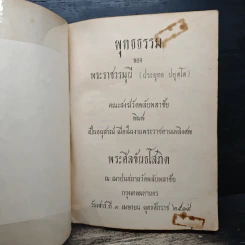 พุทธธรรม
ของ
พระราชวรมุนี (ประยุทธ ปยุตโต)
คณะสงฆ์วัดพลับพลาชัย
พิมพ์
เป็นอนุสรณ์ เนื่องในงานพระราชทานเพลิงศพ
พระศีลขันธโสภิต
ณ เมรุวัดพลับพลาชัย
กรุงเทพมหานคร
วันเสาร์ที่ ๓ เมษายน พุทธศักราช ๒๕๑๙